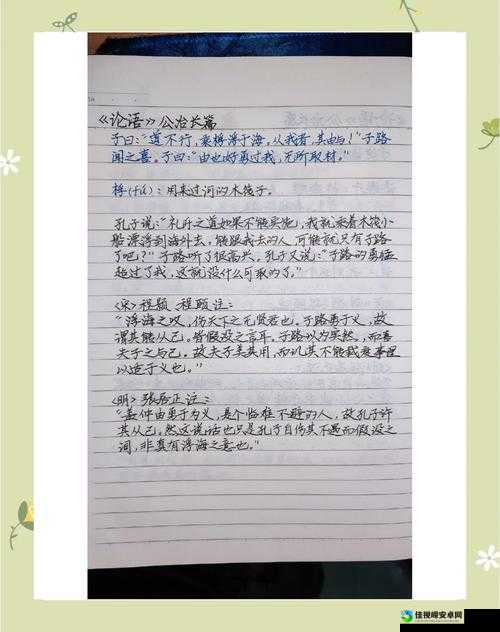 《论语》公冶长篇
子曰:"道不行,乘桴浮于海。从我者,其由与!"子路
闻之喜。子曰:"由也好勇过我,无所取材。"
桴(fú):用来过河的木筏子。
孔子说:"礼乐之道如果不能实施,我就乘着木筏小
船漂浮到海外去。能跟我去的人,可能就只有子路
了吧?"子路听了很高兴。孔子又说:"子路的勇敢
超过了我,这就没什么可取的了。"
<宋>程颢、程颐注:
"浮海之叹,伤天下之无贤君也。子路勇于义,故
谓其能从己。皆假设之言耳。子路以为实然,而喜
夫子之与己。故夫子美其勇,而讥其不能裁度事理
以适于义也。"
<明>张居正注:
"盖仲由勇于为义,是个临难不避的人,故孔子许
其从己。然这说话也只是孔子自伤其不遇而假设之
词,非真有浮海之意也。"
佳视嵘安卓网